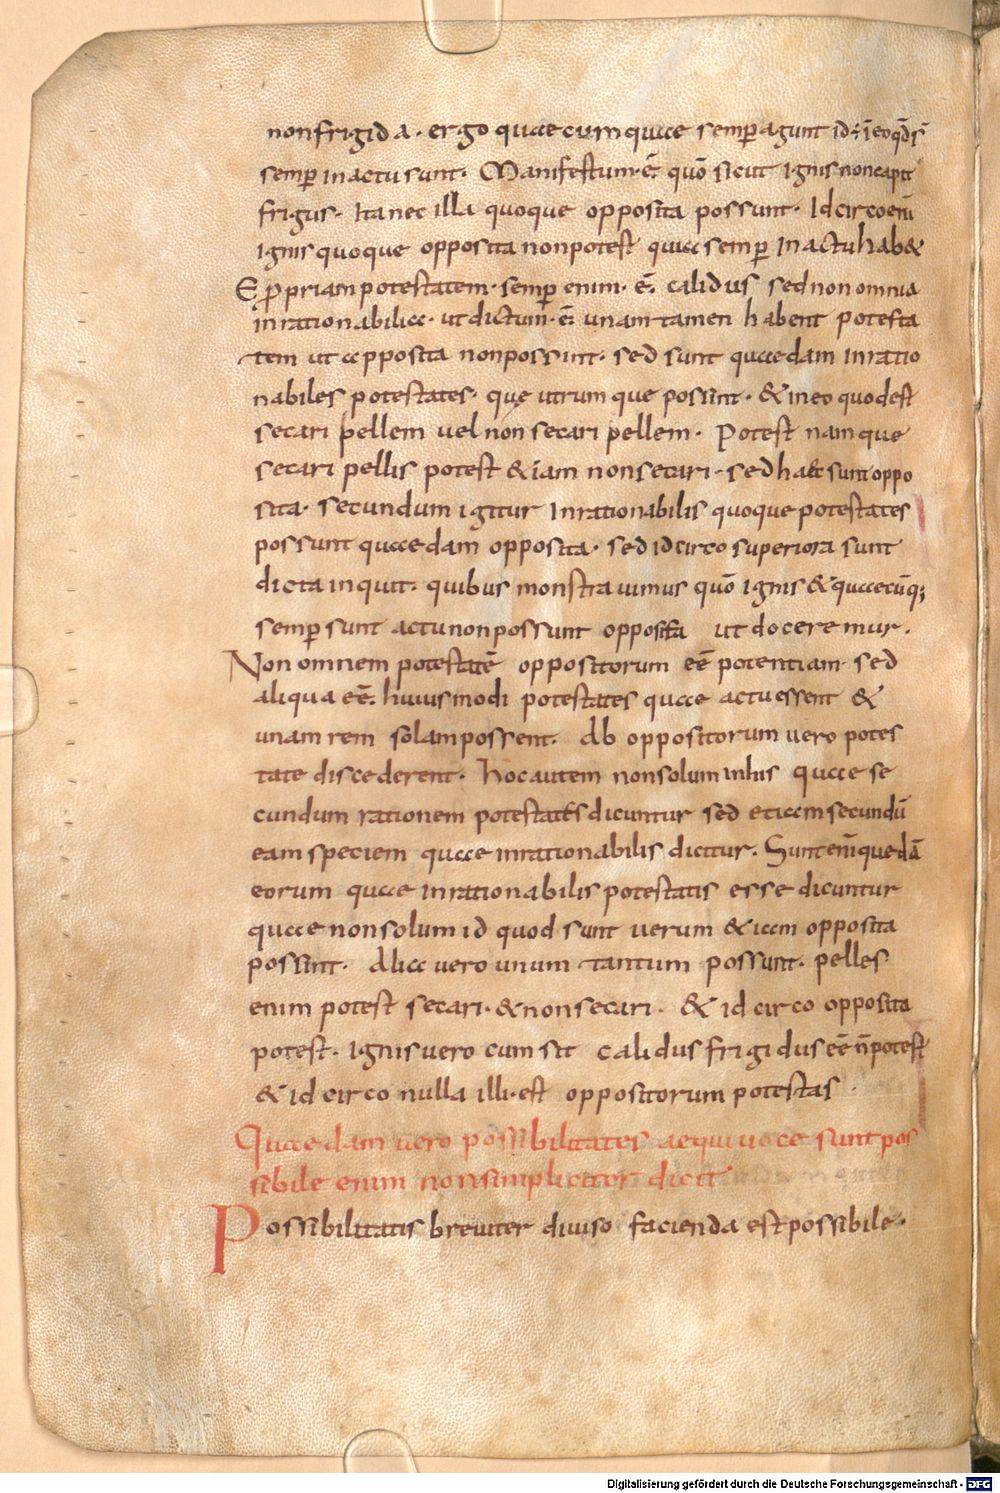 nonfrigida. ergo quaecumquae semper agunt id ÷ in eo qđ sͭ
semper in actu sunt. Manifestum ē quō sicut ignis non capit
frigus. Ita nec illa quoque opposita possunt. Idcirco enī
ignis quoque opposita non potest quia semper In actu hab&
E ꝓpriam potestatem. semꝑ enim. ē. calidus sed non omnia
inrationabilia. ut dictum. ē. unam tamen habent potesta
tem ut opposita non possint. sed sunt quaedam inratio
nabiles potestates. quę utrumque possint. & in eo quod est
secari pellem uel non secari pellem. Potest namque
secari pellis potest & iam non secari. sed haec sunt oppo
sita. secundum igitur Inrationabilis quoque potestates
possunt quaedam opposita. sed idcirco superiora sunt
dicta inquit. quibus monstrauimus quō ignis & quaecūq;
semꝑ sunt actu non possunt opposita ut doceremur.
Non omnem potestatē oppositorum eē potentiam sed
aliqua eē. huiusmodi potestates quae actu essent &
unam rem solam possent. Ab oppositorum uero potes
tate discederent. hoc autem non solum in his quae se
cundum rationem potestates dicuntur sed etiam secundū
eam speciem quae inrationabilis dicitur. Sunt enī quedā
eorum quae inrationabilis potestatis esse dicuntur
quae non solum id quod sunt uerum & iam opposita
possint. Alia uero unum tantum possunt. pelles
enim potest secari. & non secari. & idcirco opposita
potest. ignis uero cum sit calidus frigidus eē ñ potest
& idcirco nulla illi. est oppositorum potestas.
Quaedam uero possibilitates aequiuoce sunt pos
sibile enim non simpliciter dicit
Possibilitatis breuiter diuiso facienda est possibile.
Digitalisierung gefördert durch die Deutsche Forschungsgemeinschaft - DFG